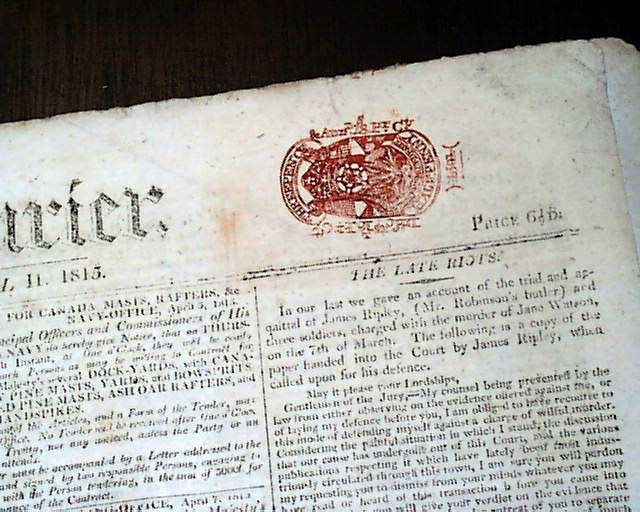 urier.
L 11. 1815.
PRICE 6½D.
FOR CANADA MASTS, RAFTERS, &c
NAVY-OFFICE, April 3, 1815.
cipal Officers and Commissioners of His
NAVY do hereby give Notice, that on THURS-
Instant, at One o'Clock, they will be ready
DOCK-YARDS, with CANA-
PINE MASTS, YARDS, and BOWSPRITS
D PINE MASTS, ASH OAR RAFTERS, and
HANDSPIKES.
of the Articles, and a Form of the Tender, may
Office. No Tender will be received after One o'Cloc
Treaty, nor any noticed, unless the Party or an
attends.
must be accompanied by a Letter addressed to the
and signed by two responsible Persons, engaging to
with the Person tendering, in the sum of for
ance of the Contract.
OFFICE, April 7, 1815
Majesty's
THE LATE RIOTS.
In our last we gave an account of the trial and ac-
quittal of James Ripley, (Mr. Robinson's butler) and
three soldiers, charged with the murder of Jane Watson,
on the 7th of March. The following is a copy of the
paper handed into the Court by James Ripley, when
called upon for his defence.
May it please your Lordships,
Gentlemen of the Jury,—My counsel being prevented by the
law from either observing on the evidence offered against me, or
of laying my defence before you, I am obliged to have recourse to
this mode of defending myself against a charge of wilful murder.
Considering the painful situation in which I stand, the discussion
that our cause has undergone out of this Court, and the various
publications respecting it which have lately been most indus-
triously circulated through this town, I am sure you will pardon
my requesting you to dismiss from your minds whatever you may
have read or heard of this transaction before you came into
you will give your verdict on the evidence that
of you to separate